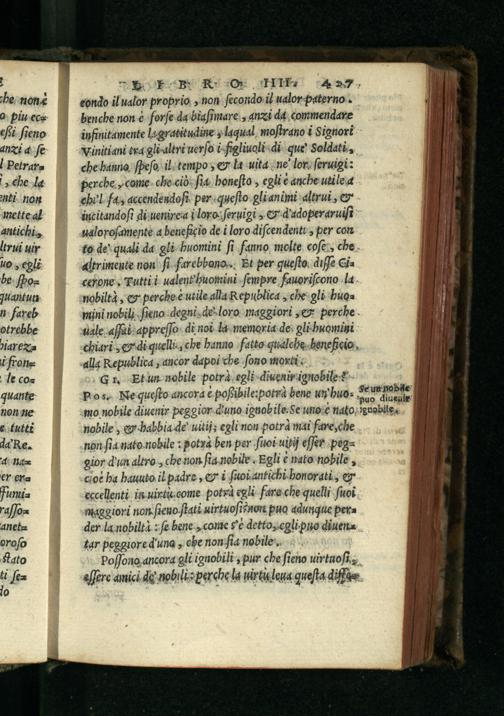 LIBRO IIII. 427
condo il ualor proprio, non secondo il ualor paterno.
benche non è forse da biasimare, anzi da commendare
infinitamente la gratitudine, laqual mostrano i Signori
Vinitiani tra gli altri uerso i figliuoli di que' Soldati,
che hanno speso il tempo, & la uita ne' lor seruigi:
perche, come che ciò sia honesto, egli è anche utile a
chi'l fa, accendendosi per questo gli animi altrui, &
incitandosi di uenire a i loro seruigi, & d'adoperaruisi
ualorosamente a beneficio de i loro discendenti, per con
to de' quali da gli huomini si fanno molte cose, che
altrimente non si farebbono. Et per questo disse Ci-
cerone. Tutti i ualent'huomini sempre fauoriscono la
nobiltà, & perche è utile alla Republica, che gli huo-
mini nobili sieno degni de' loro maggiori, & perche
uale assai appresso di noi la memoria de gli huomini
chiari, & di quelli, che hanno fatto qualche beneficio
alla Republica, ancor dapoi che sono morti.
GI. Et un nobile potrà egli diuenir ignobile?
POS. Ne questo ancora è possibile: potrà bene un'huo-
mo nobile diuenir peggior d'uno ignobile. Se uno è nato
nobile, & habbia de' uitij; egli non potrà mai fare, che
non sia nato nobile: potrà ben per suoi uitij esser peg-
gior d'un altro, che non sia nobile. Egli è nato nobile,
cioè ha hauuto il padre, & i suoi antichi honorati, &
eccellenti in uirtù: come potrà egli fare che quelli suoi
maggiori non sieno stati uirtuosi? non puo adunque per-
der la nobiltà: se bene, come s'è detto, egli puo diuen-
tar peggiore d'uno, che non sia nobile.
Possono ancora gli ignobili, pur che sieno uirtuosi,
essere amici de' nobili: perche la uirtù leua questa diffe-
Se un nobile
puo diuenir
ignobile.
che non è
o piu ec=
essi sieno
anzi a se
l Petrar=
i, che la
enti non
mette al
antichi,
ltrui uir
suo, egli
be spo=
quantun
n fareb
potrebbe
hiarez=
ni fron=
le co=
quante
non ne
e tutti
da'Re.
ta na=
er er=
ffumi=
rasso=
anet=
oroso
stato
ti se=
do